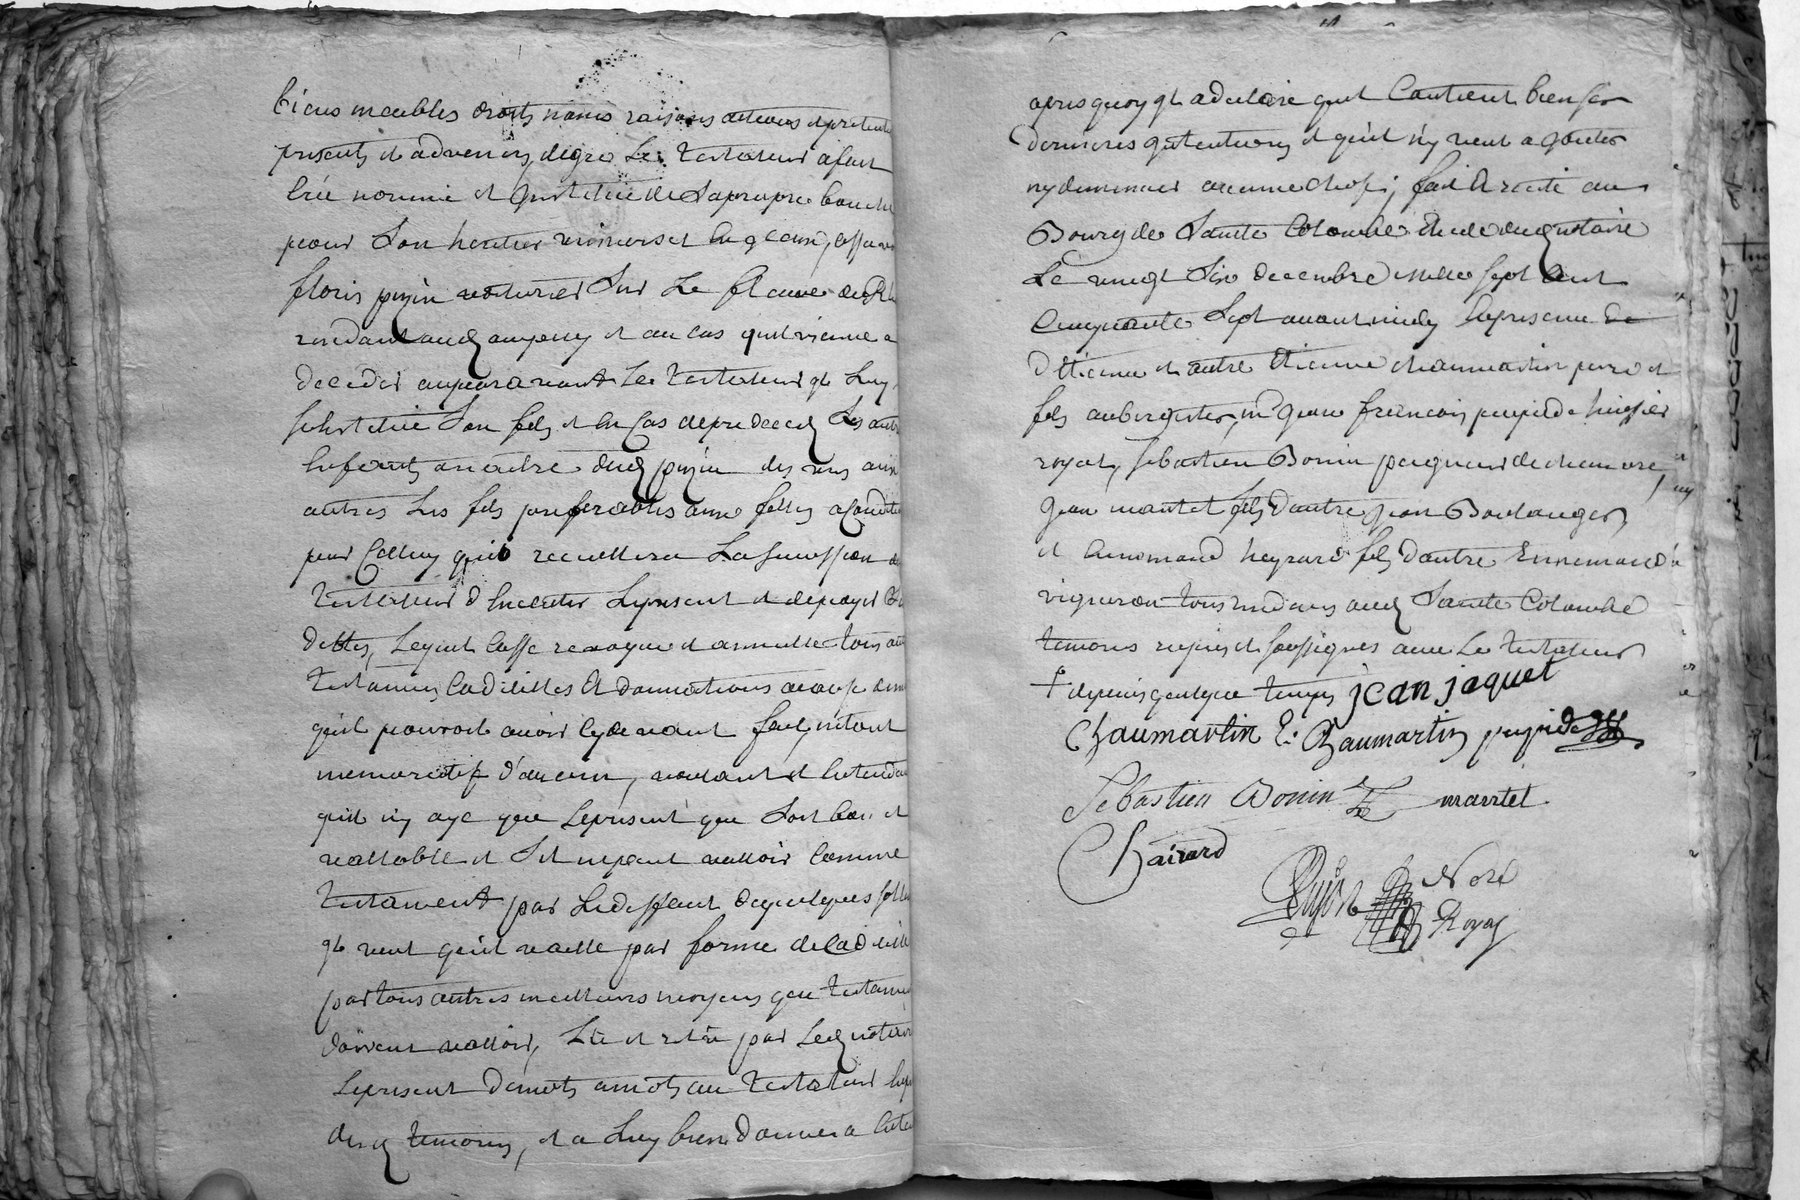 biens meubles droits noms raisons actions et pretent
presents et advenir, degré Le testateur a fait
Créé nommé et Institué de Sa propre bouche
pour Son heritier universel
floris puzin voiturier Sur Le fleuve du Rh
residant aud ampuy et au cas quil vienne a
deceder auparavant Le testateur luy
Substitue Son fils et en Cas de predeced Les autr
Enfants dud puzin des uns aux
autres Les fils preferables aux filles a Condition
pour Celluy quil recuillera La Succession du
testateur d'Executer Le present et de payer
dettes, Lequel Casse revoque et annulle tous au
testamens Codicilles Et donnations a cause de m
quil pourroit avoir cy devant fait, n'etant
memoratif d'aucun, voulant et Entendant
quil n'y aye que Le present que Soit bon et
vallable et S'il ne peut valloir Comme
testament par Le deffaut de quelques soll
veut quil vaille par forme de Codicille
par tous autres meilleurs moyens que testamen
doivent valloir, Lû et relû par Led notaire
Le present de mots a mots au testateur
desd temoins, et a Luy bien donner a Enten
apres quoy a declaré quil Contient bien ses
dernieres Intentions et quil n'y veut ajouter
ny diminuer aucune chose; fait et recité au
Bourg de Sainte Colombe Etude dud notaire
Le vingt Six decembre mille Sept Cent
Cinquante Sept avant midy En presence de
d'Etienne et autre Etienne chaumartin pere et
fils aubergistes, francois pupide huissier
royal, Sebastien Bonin peigneur de chanvre,
Jean mantel fils d'autre Jean Boulanger,
et Ennemond heyrard fils d'autre Ennemond
vigneron tous residans aud Sainte Colombe
temoins requis et soussignes avec Le testateur
+ depuis quelque temps jean jaquet
Chaumartin E. Chaumartin pupide
Sebastien Bonin mantel
hairard
Notre
Royal